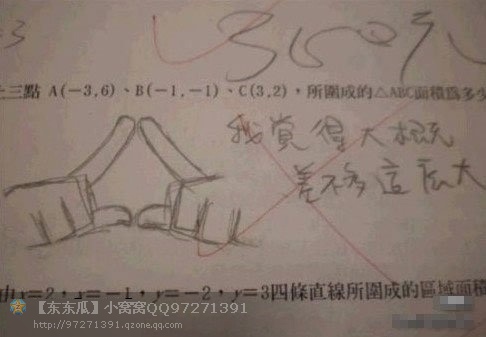 =3
上三點 A(-3,6)、B(-1,-1)、C(3,2)，所圍成的△ABC面積為多少
我覺得大概
差不多這麼大
由x=2，x=-1，y=-2，y=3四條直線所圍成的區域面積
【东东瓜】小窝窝QQ97271391
http://97271391.qzone.qq.com